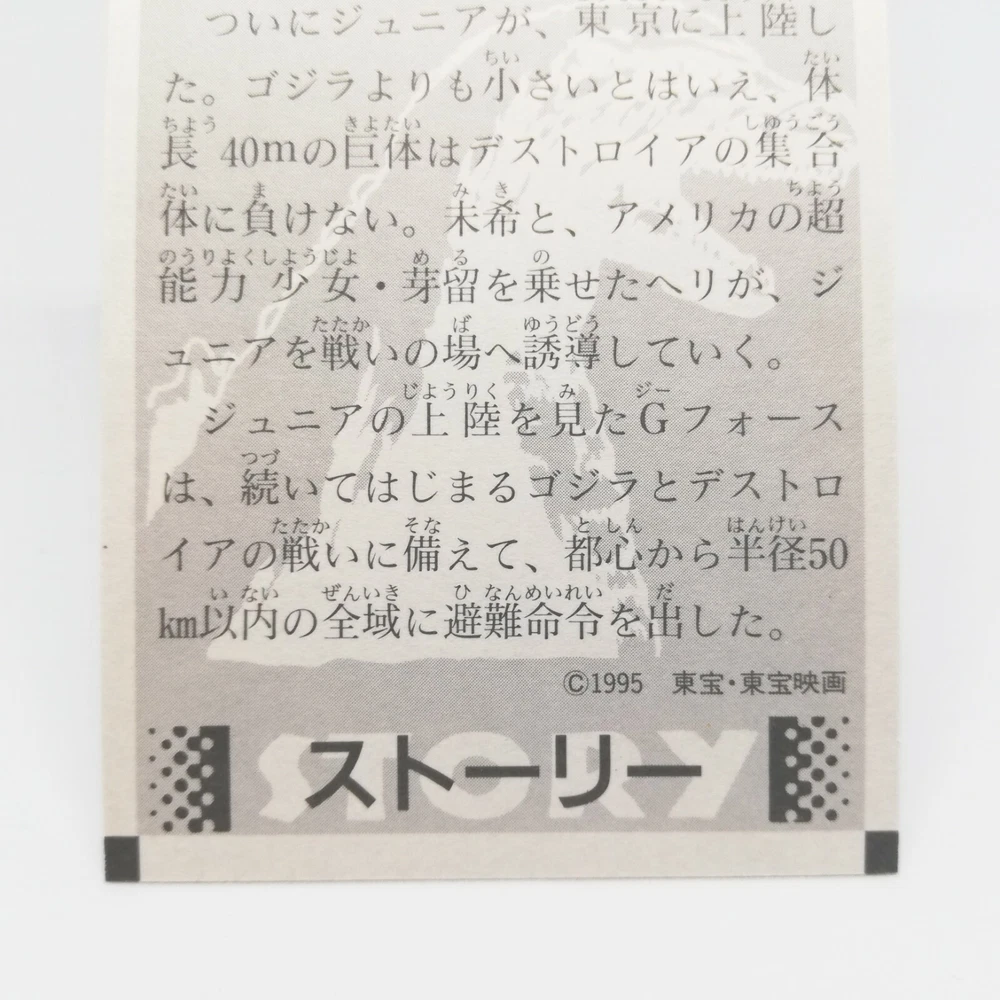 ついにジュニアが、東京に上陸し
た。ゴジラよりも小さいとはいえ、体
長40mの巨体はデストロイアの集合
体に負けない。未希と、アメリカの超
能力少女・芽留を乗せたヘリが、ジ
ュニアを戦いの場へ誘導していく。
ジュニアの上陸を見たGフォース
は、続いてはじまるゴジラとデストロ
イアの戦いに備えて、都心から半径50
km以内の全域に避難命令を出した。
©1995 東宝・東宝映画
STORY
ストーリー